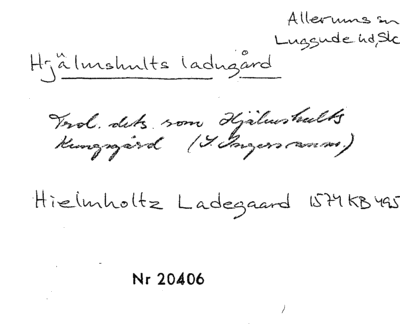 Allerums sn
Luggude hd, Sk
Hjälmshults ladugård
Trol. dets. som Hjälmshults
Kungsgård (S. Ingers anm.)
Hielmholtz Ladegaard 1571 KB 495
Nr 20406